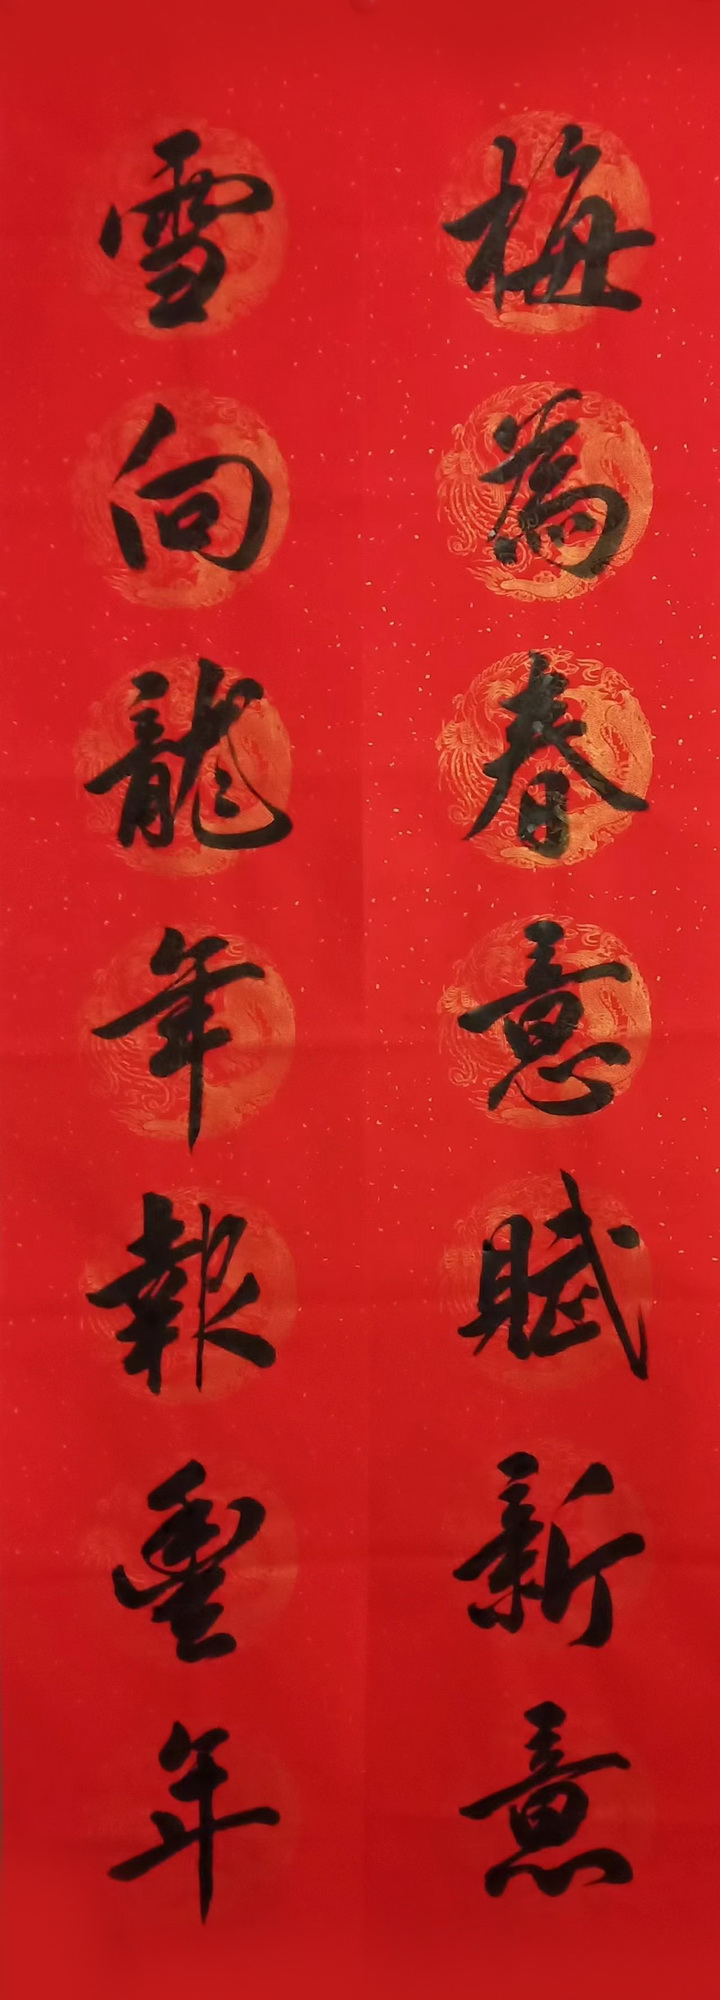 梅為春意賦新意
雪向龍年報豐年